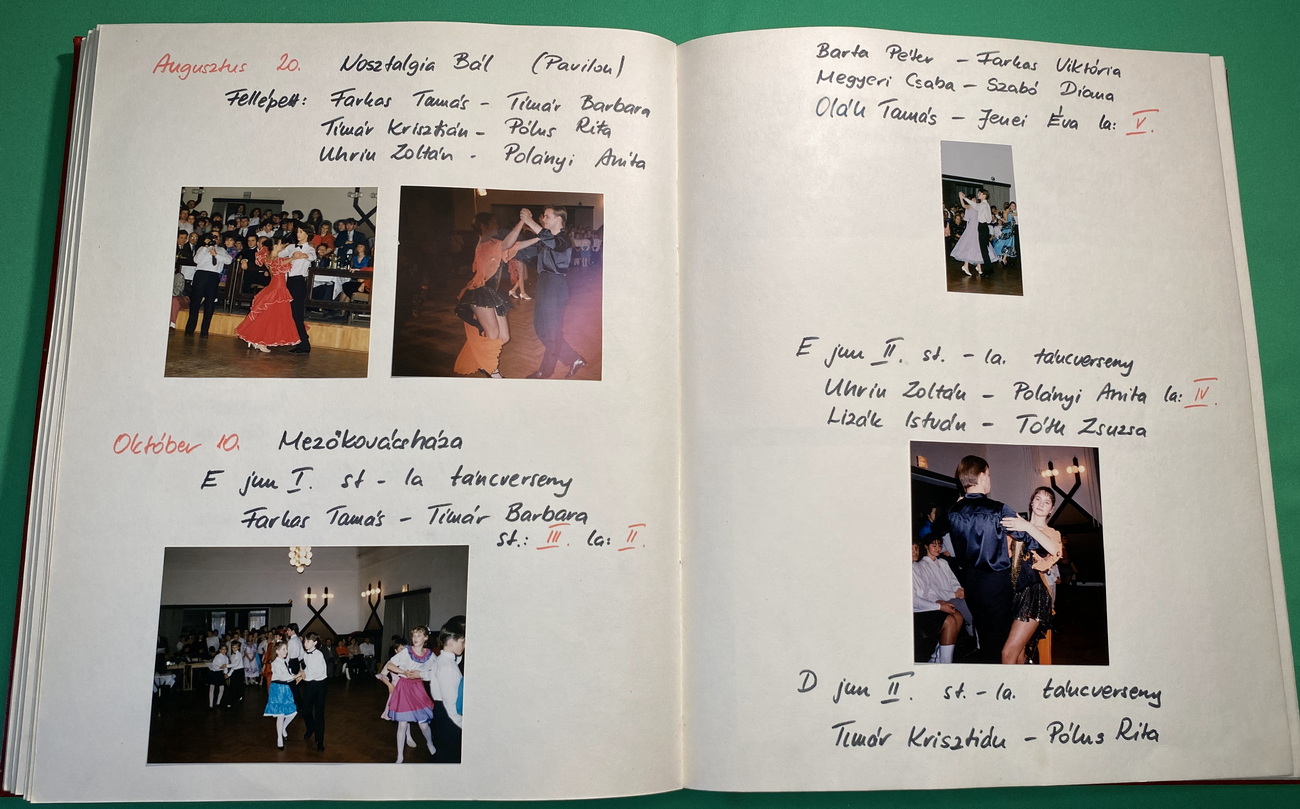 Augusztus 20. Nosztalgia Bál (Pavilon)
Fellépett: Farkas Tamás - Tímár Barbara
Tímár Krisztián - Pólus Rita
Uhrin Zoltán - Polányi Anita
Október 10. Mezőkovácsháza
E jun I. st - la táncverseny
Farkas Tamás - Tímár Barbara
st.: III. la: II.
Barta Péter - Farkas Viktória
Megyeri Csaba - Szabó Diana
Oláh Tamás - Jenei Éva la: V.
E jun II. st. - la. táncverseny
Uhrin Zoltán - Polányi Anita la: IV.
Lizák István - Tóth Zsuzsa
D jun II. st. - la. táncverseny
Tímár Krisztián - Pólus Rita